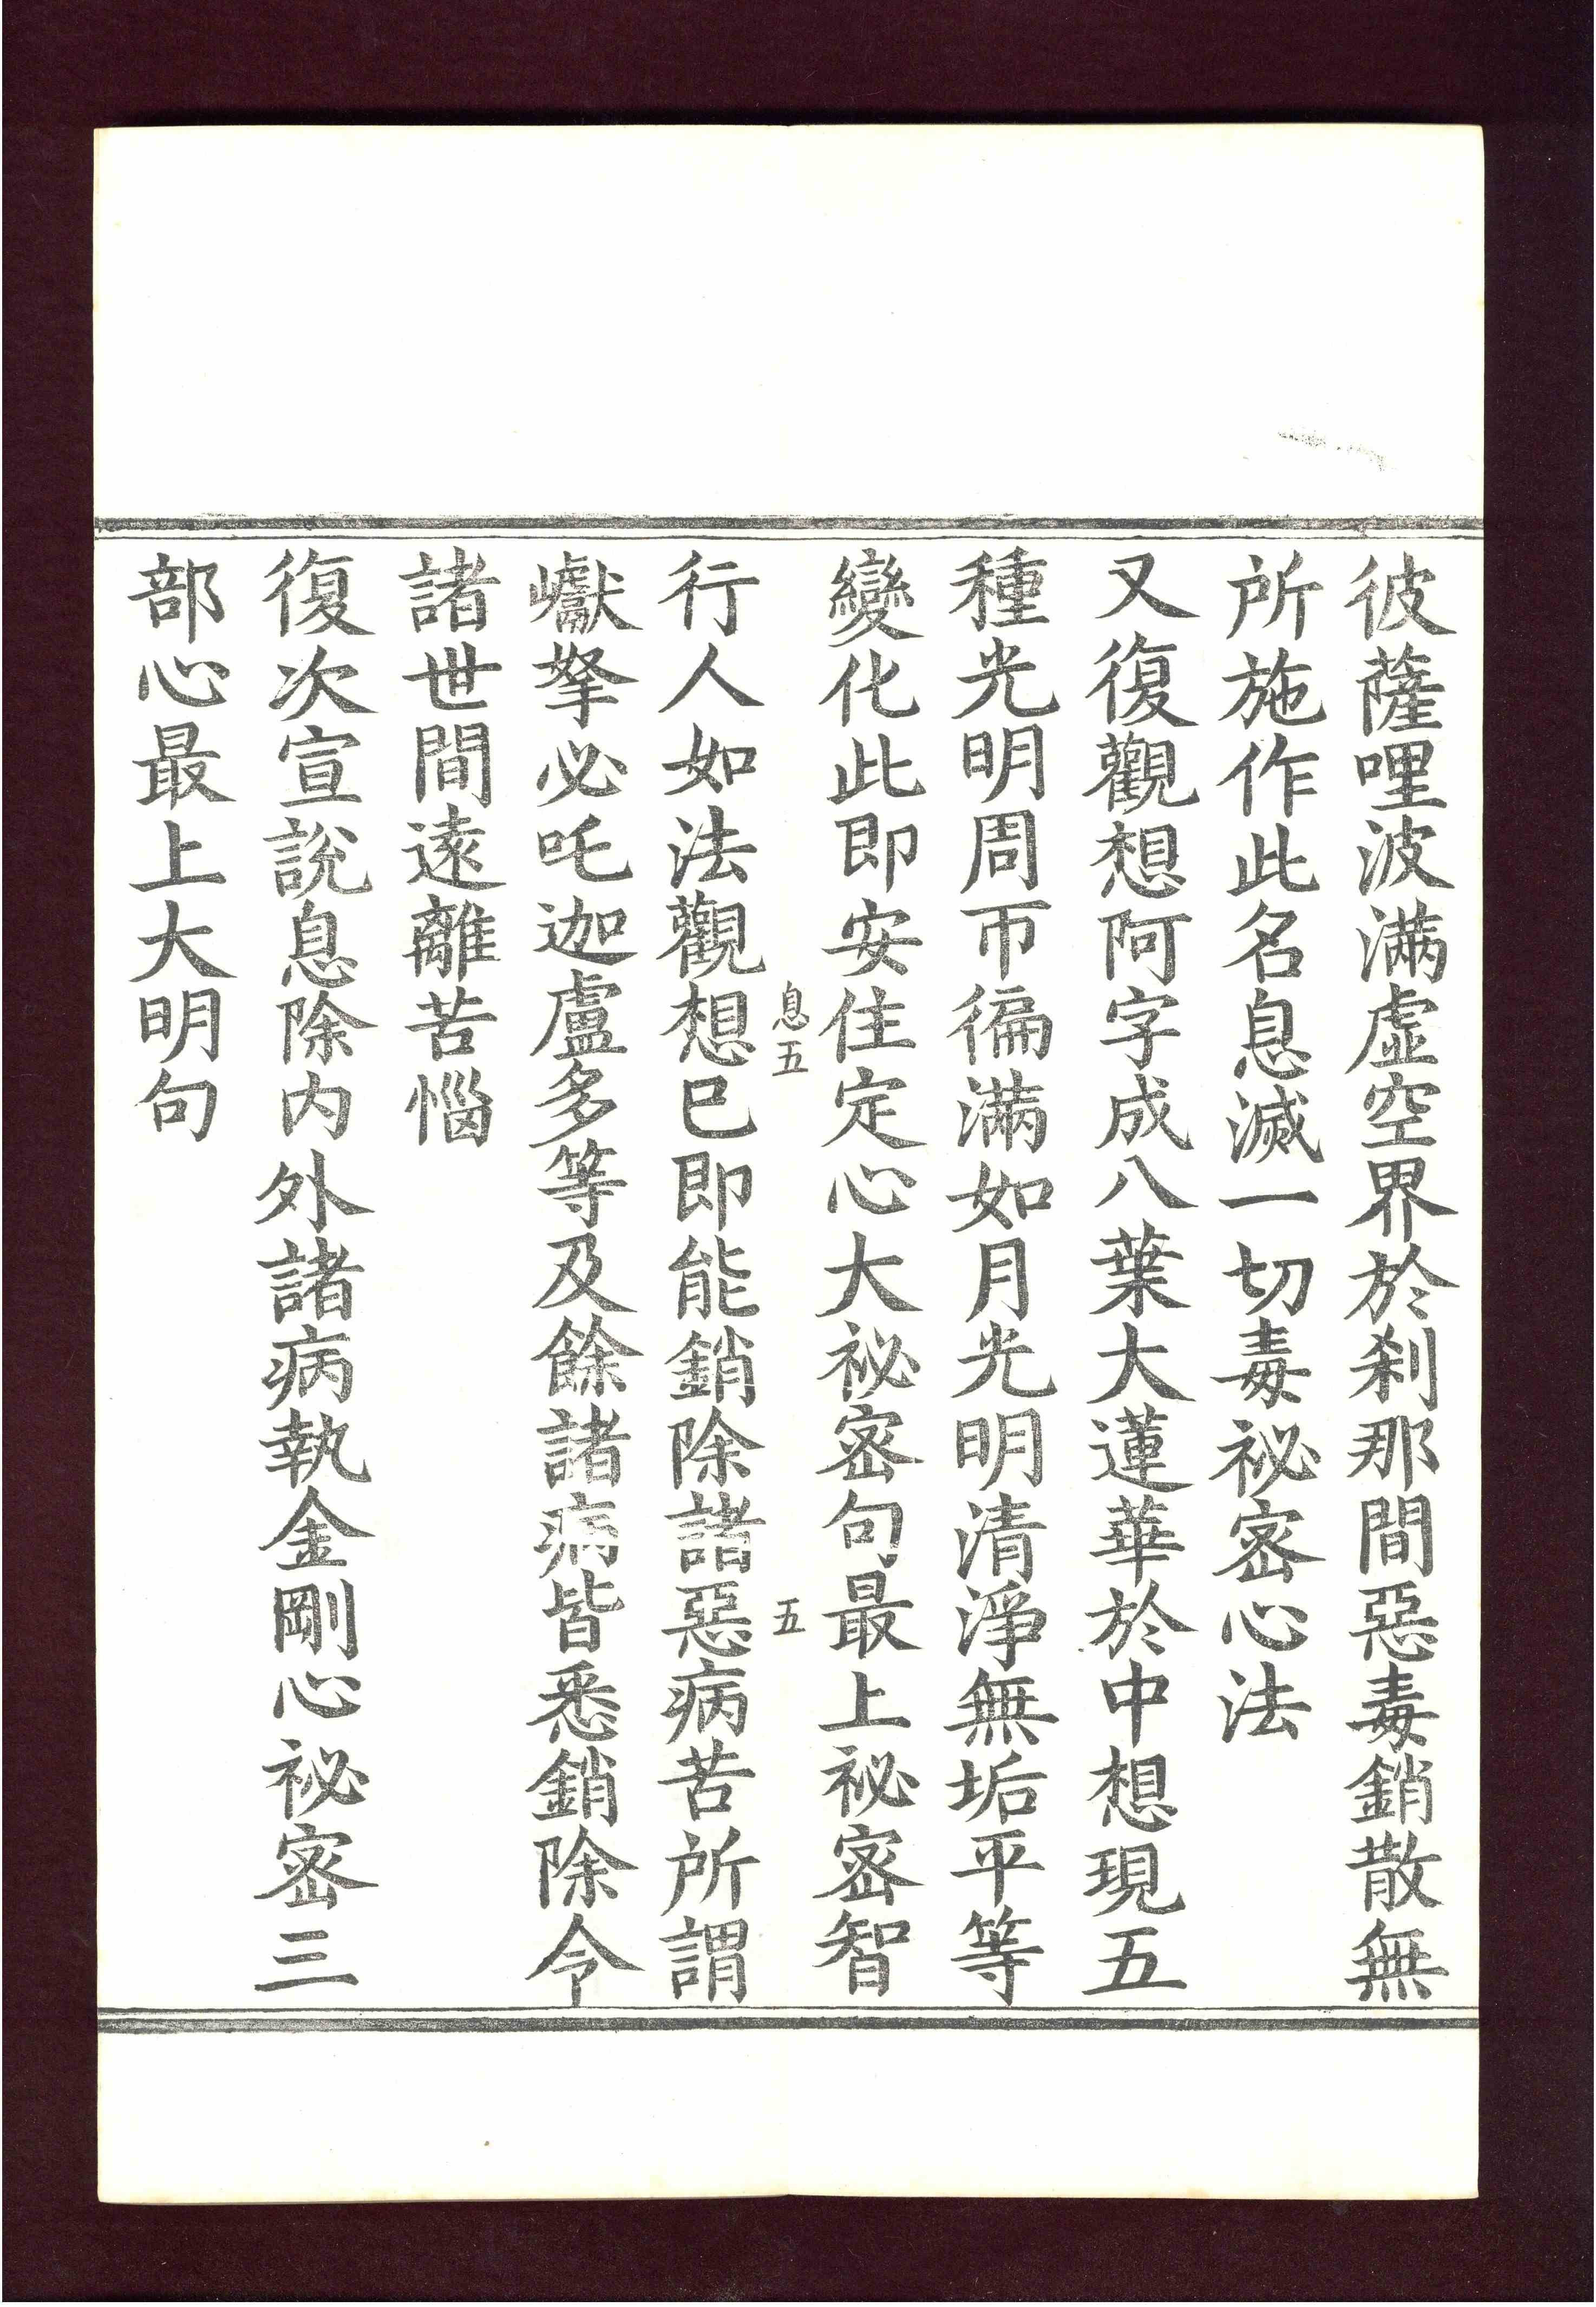 彼薩哩波滿虛空界於剎那間惡毒銷散無
所施作此名息滅一切毒祕密心法
又復觀想阿字成八葉大蓮華於中想現五
種光明周帀徧滿如月光明清淨無垢平等
變化此即安住定心大祕密句最上祕密智
息五
五
行人如法觀想已即能銷除諸惡病苦所謂
巘拏必吒迦盧多等及餘諸病皆悉銷除令
諸世間遠離苦惱
復次宣說息除內外諸病執金剛心祕密三
部心最上大明句